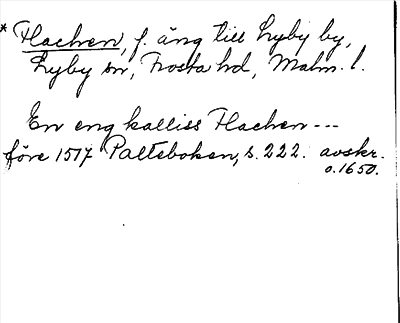 * Flachen, f. äng till Lyby by,
Lyby sn, Frosta hd, Malm. l.
En eng kalliss Flachen ---
före 1517 Palteboken, s. 222. avskr.
o. 1650.